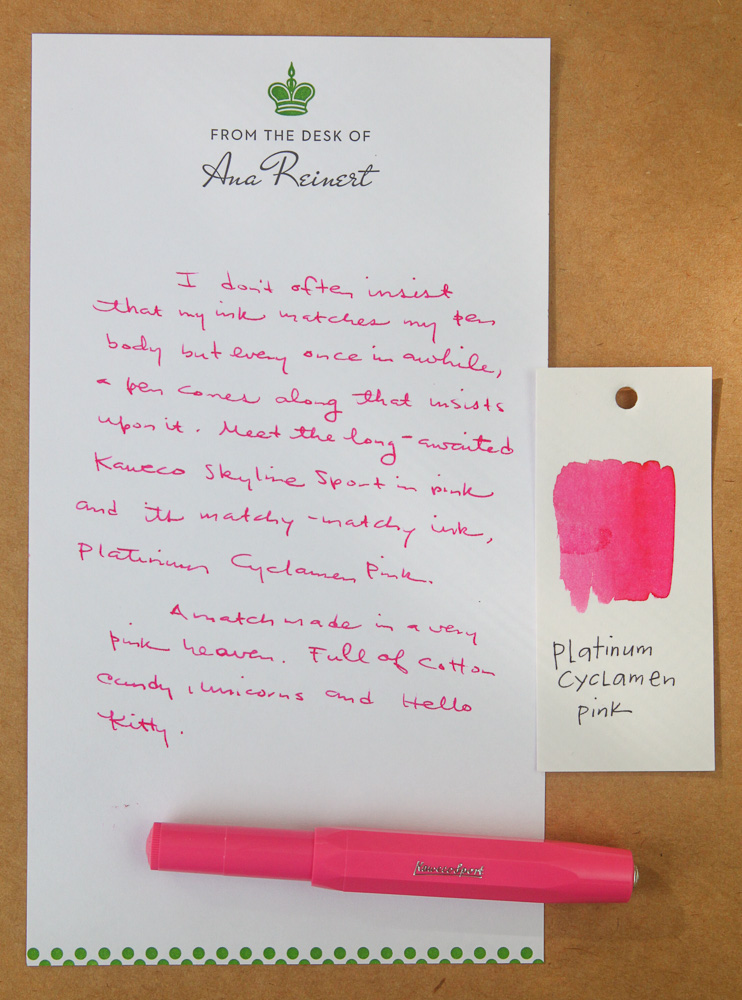 FROM THE DESK OF
Ana Reinert
I don't often insist
that my ink matches my pen
body but every once in awhile,
a pen comes along that insists
upon it. Meet the long-awaited
Kaweco Skyline Sport in pink
and its matchy-matchy ink,
Platinum Cyclamen Pink.
A match made in a very
pink heaven. Full of cotton
candy, unicorns and Hello
Kitty.
Platinum
Cyclamen
pink
KawecoSport